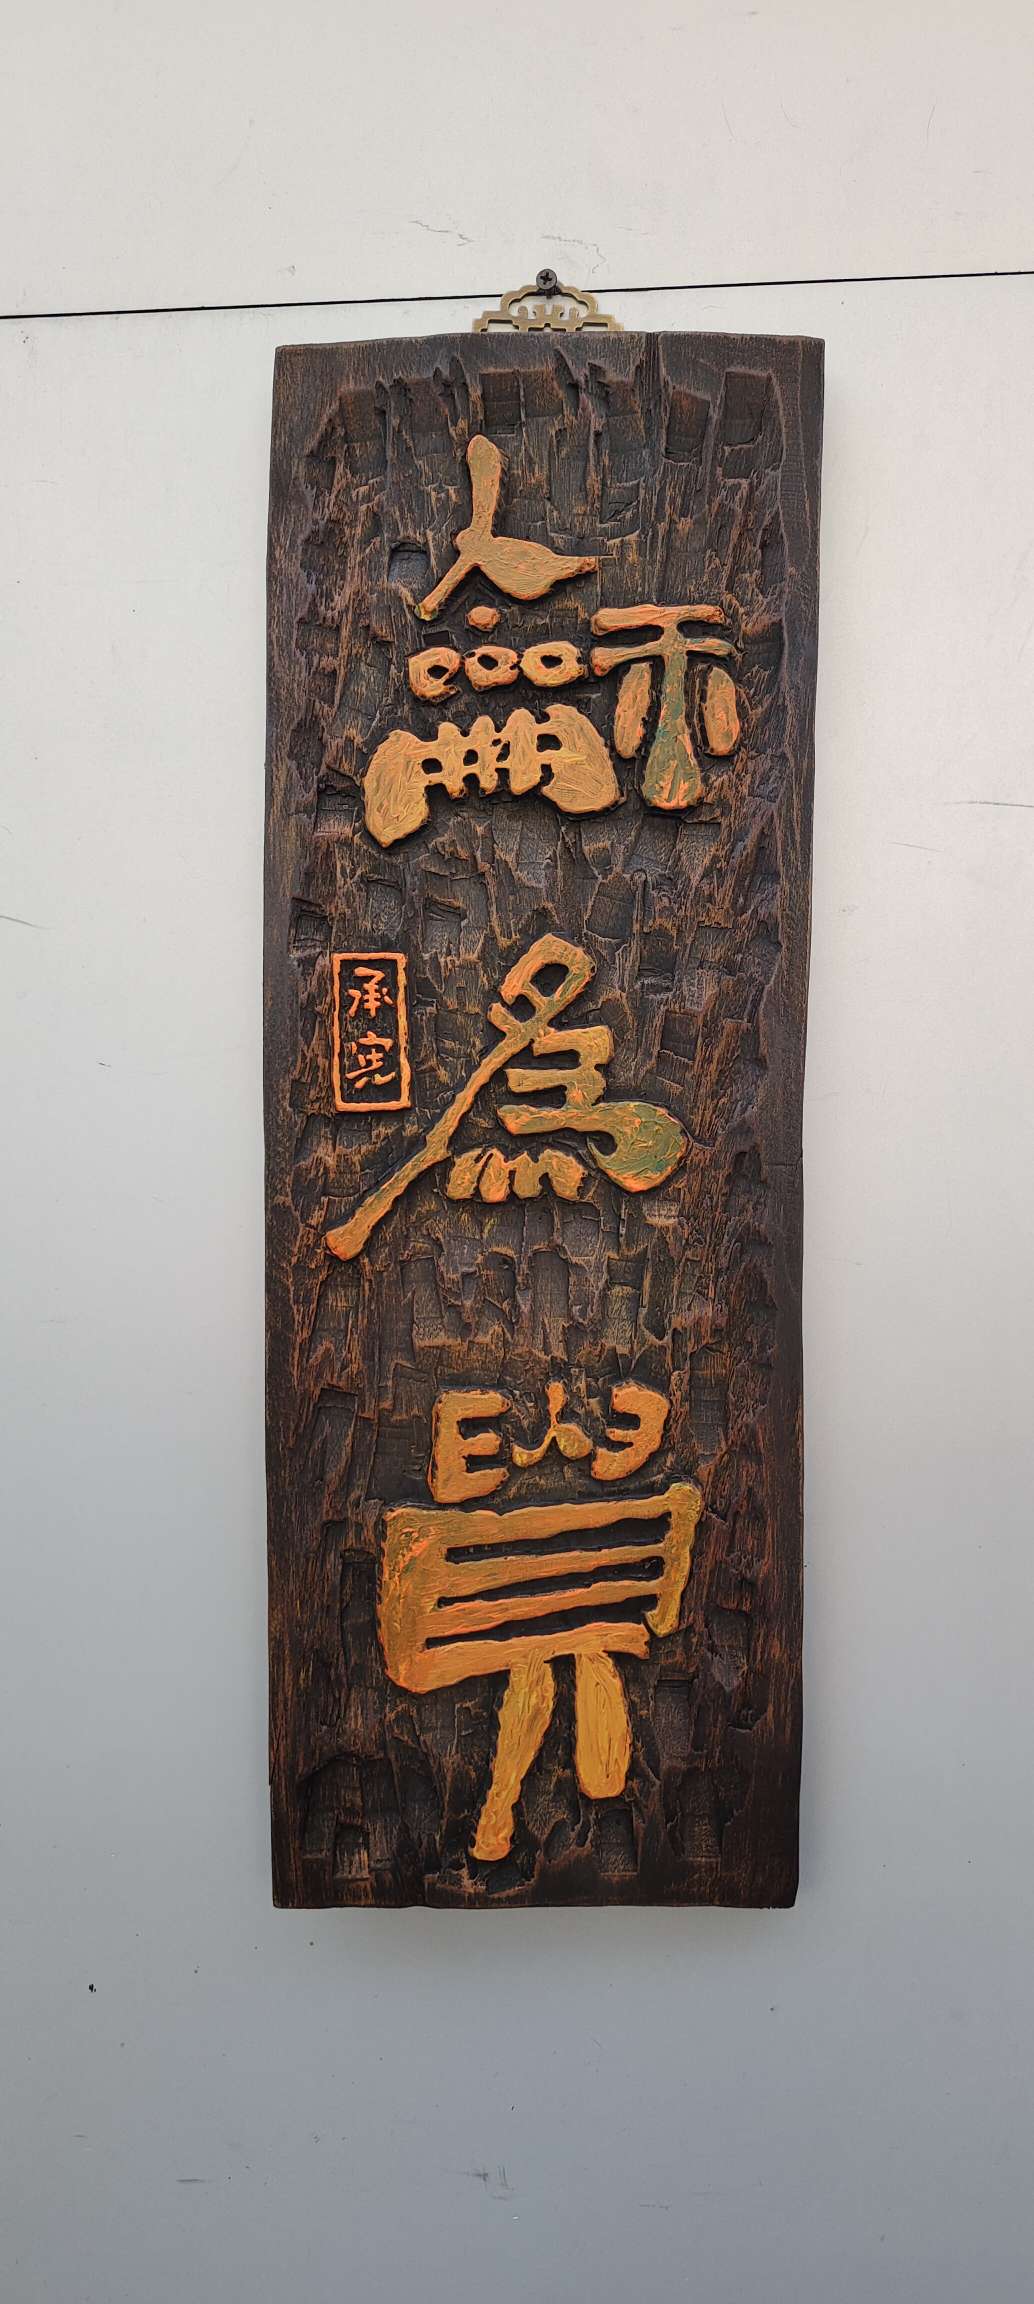 龢為貴
承宪